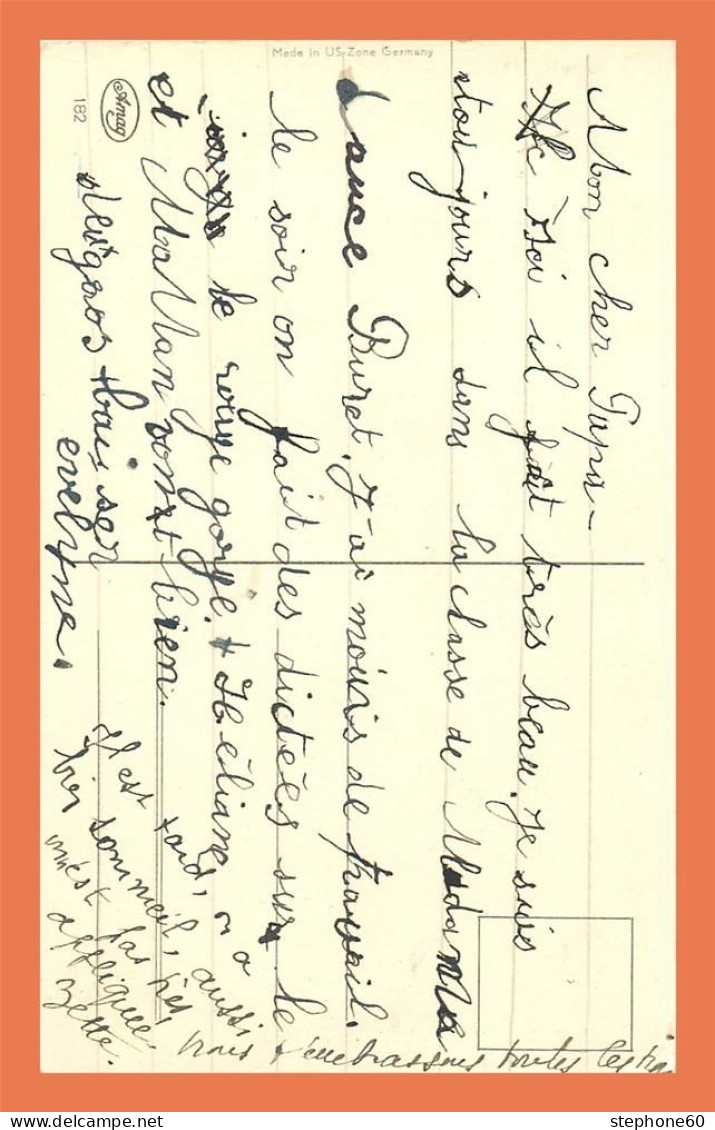 Made in US-Zone Germany
Amag
182
Mon cher Papa-
Ici il fait très beau. Je suis
toujours dans la classe de Madame
Lance Buret. J'ai moins de travail.
le soir on fait des dictées sur le
le rouge gorge. Héliane
et MaMan vont bien.
des gros baiser
evelyne.
Il est tard, on a
bien sommeil, aussi
n'est pas très
appliquée.
zette.
nous t'embrassons toutes les trois
stephone60